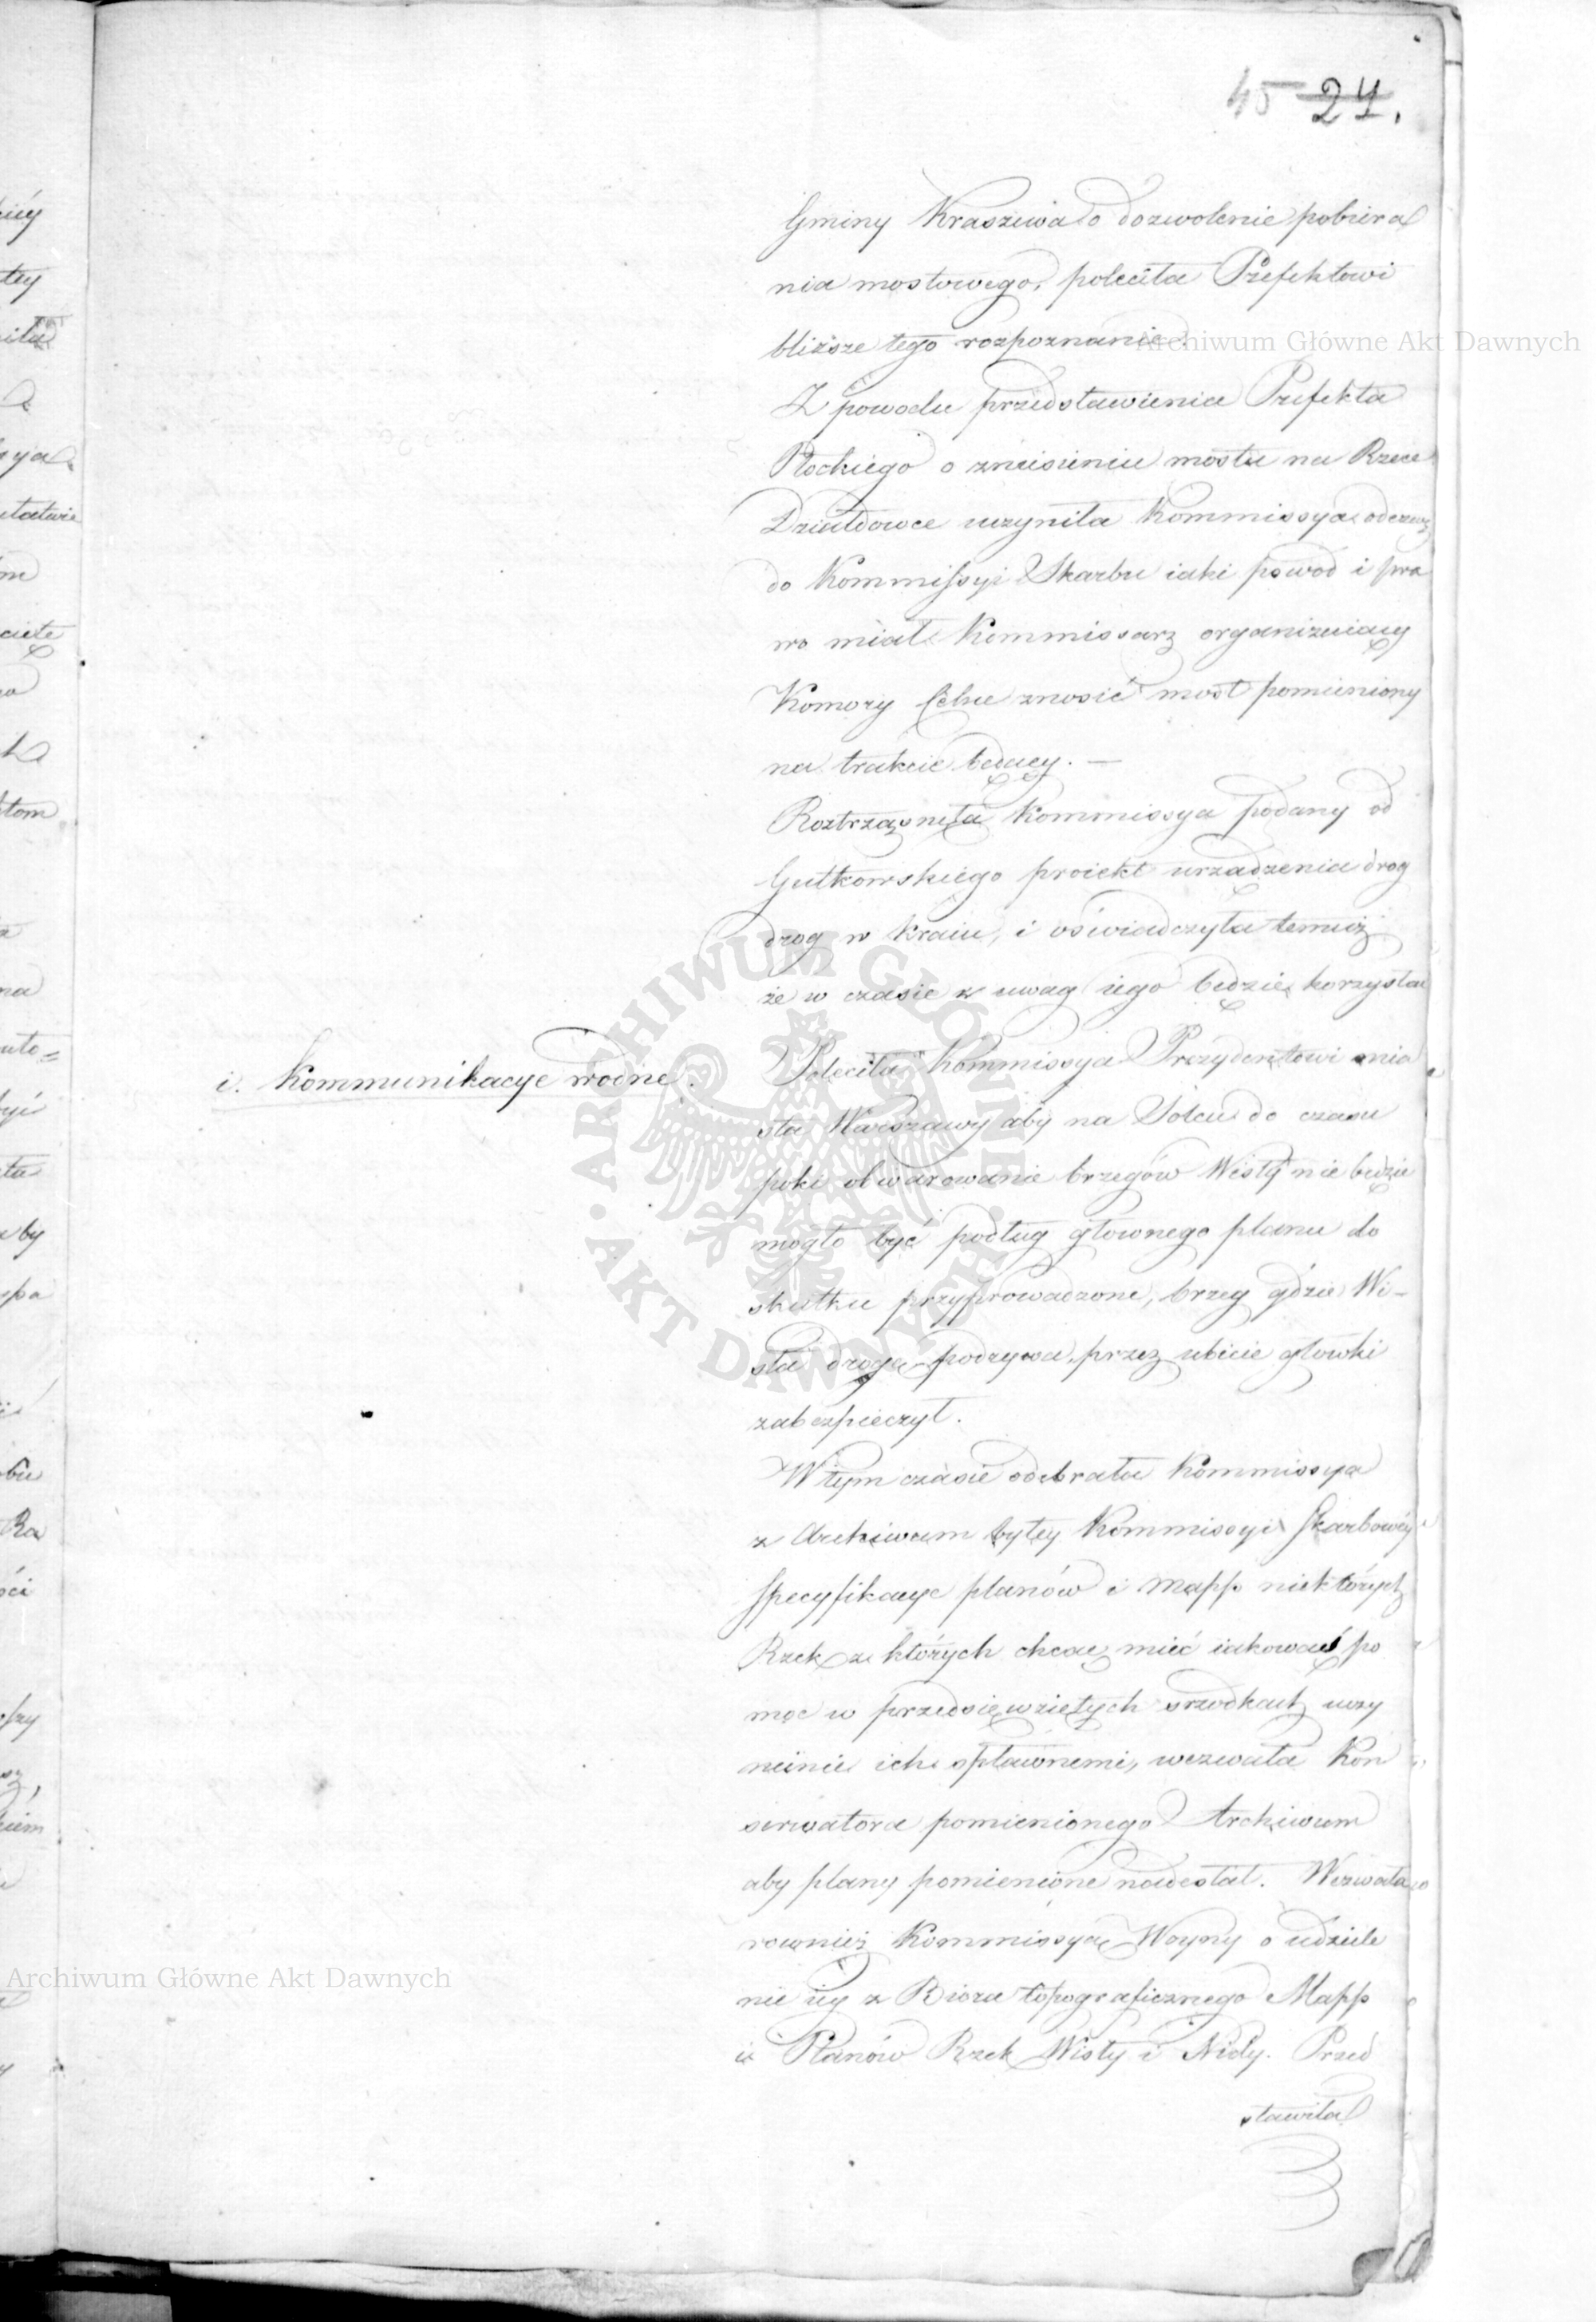 45 24.
Gminy Kraszewa o dozwolenie pobiera
nia mostowego, poleciła Prefektowi
bliższe tego rozpoznanie.
Archiwum Główne Akt Dawnych
Z powodu przedstawienia Prefekta
Płockiego o zniesieniu mostu na Rzece
Działdowce uczyniła Kommissya odezwę
do Kommissyi Skarbu iaki powod i pra
wo miał Kommissarz organizuiący
Komory Celne znosić most pomieniony
na trakcie będący. —
Roztrząsnęła Kommissya podany od
Gutkowskiego proiekt urządzenia drog
drog w kraiu, i oświadczyła temuż
że w czasie z uwag iego będzie korzystać
i. Kommunikacye wodne.
Poleciła Kommissya Prezydentowi mia
sta Warszawy aby na Solcu do czasu
poki obwarowanie brzegów Wisły nie będzie
mogło być podług głownego planu do
skutku przyprowadzone, brzeg gdzie Wi-
sła drogę podrywa, przez ubicie głowki
zabezpieczył.
W tym czasie odebrała Kommissya
z Archiwum byłey Kommissyi Skarbowéy
specyfikacye planów i mapp niektórych
Rzek z których chcąc mieć iakowąś po
moc w przedsięwziętych srzodkach uczy
nienie ich spławnemi, wezwała Kon
serwatora pomienionego Archiwum
aby plany pomienione nadesłał. Wezwała
rownież Kommissyą Woyny o udziele
nie iey z Biora topograficznego Mapp
i Planów Rzek Wisły i Nidy. Przed
stawiła
Archiwum Główne Akt Dawnych
ARCHIWUM GŁÓWNE AKT DAWNYCH